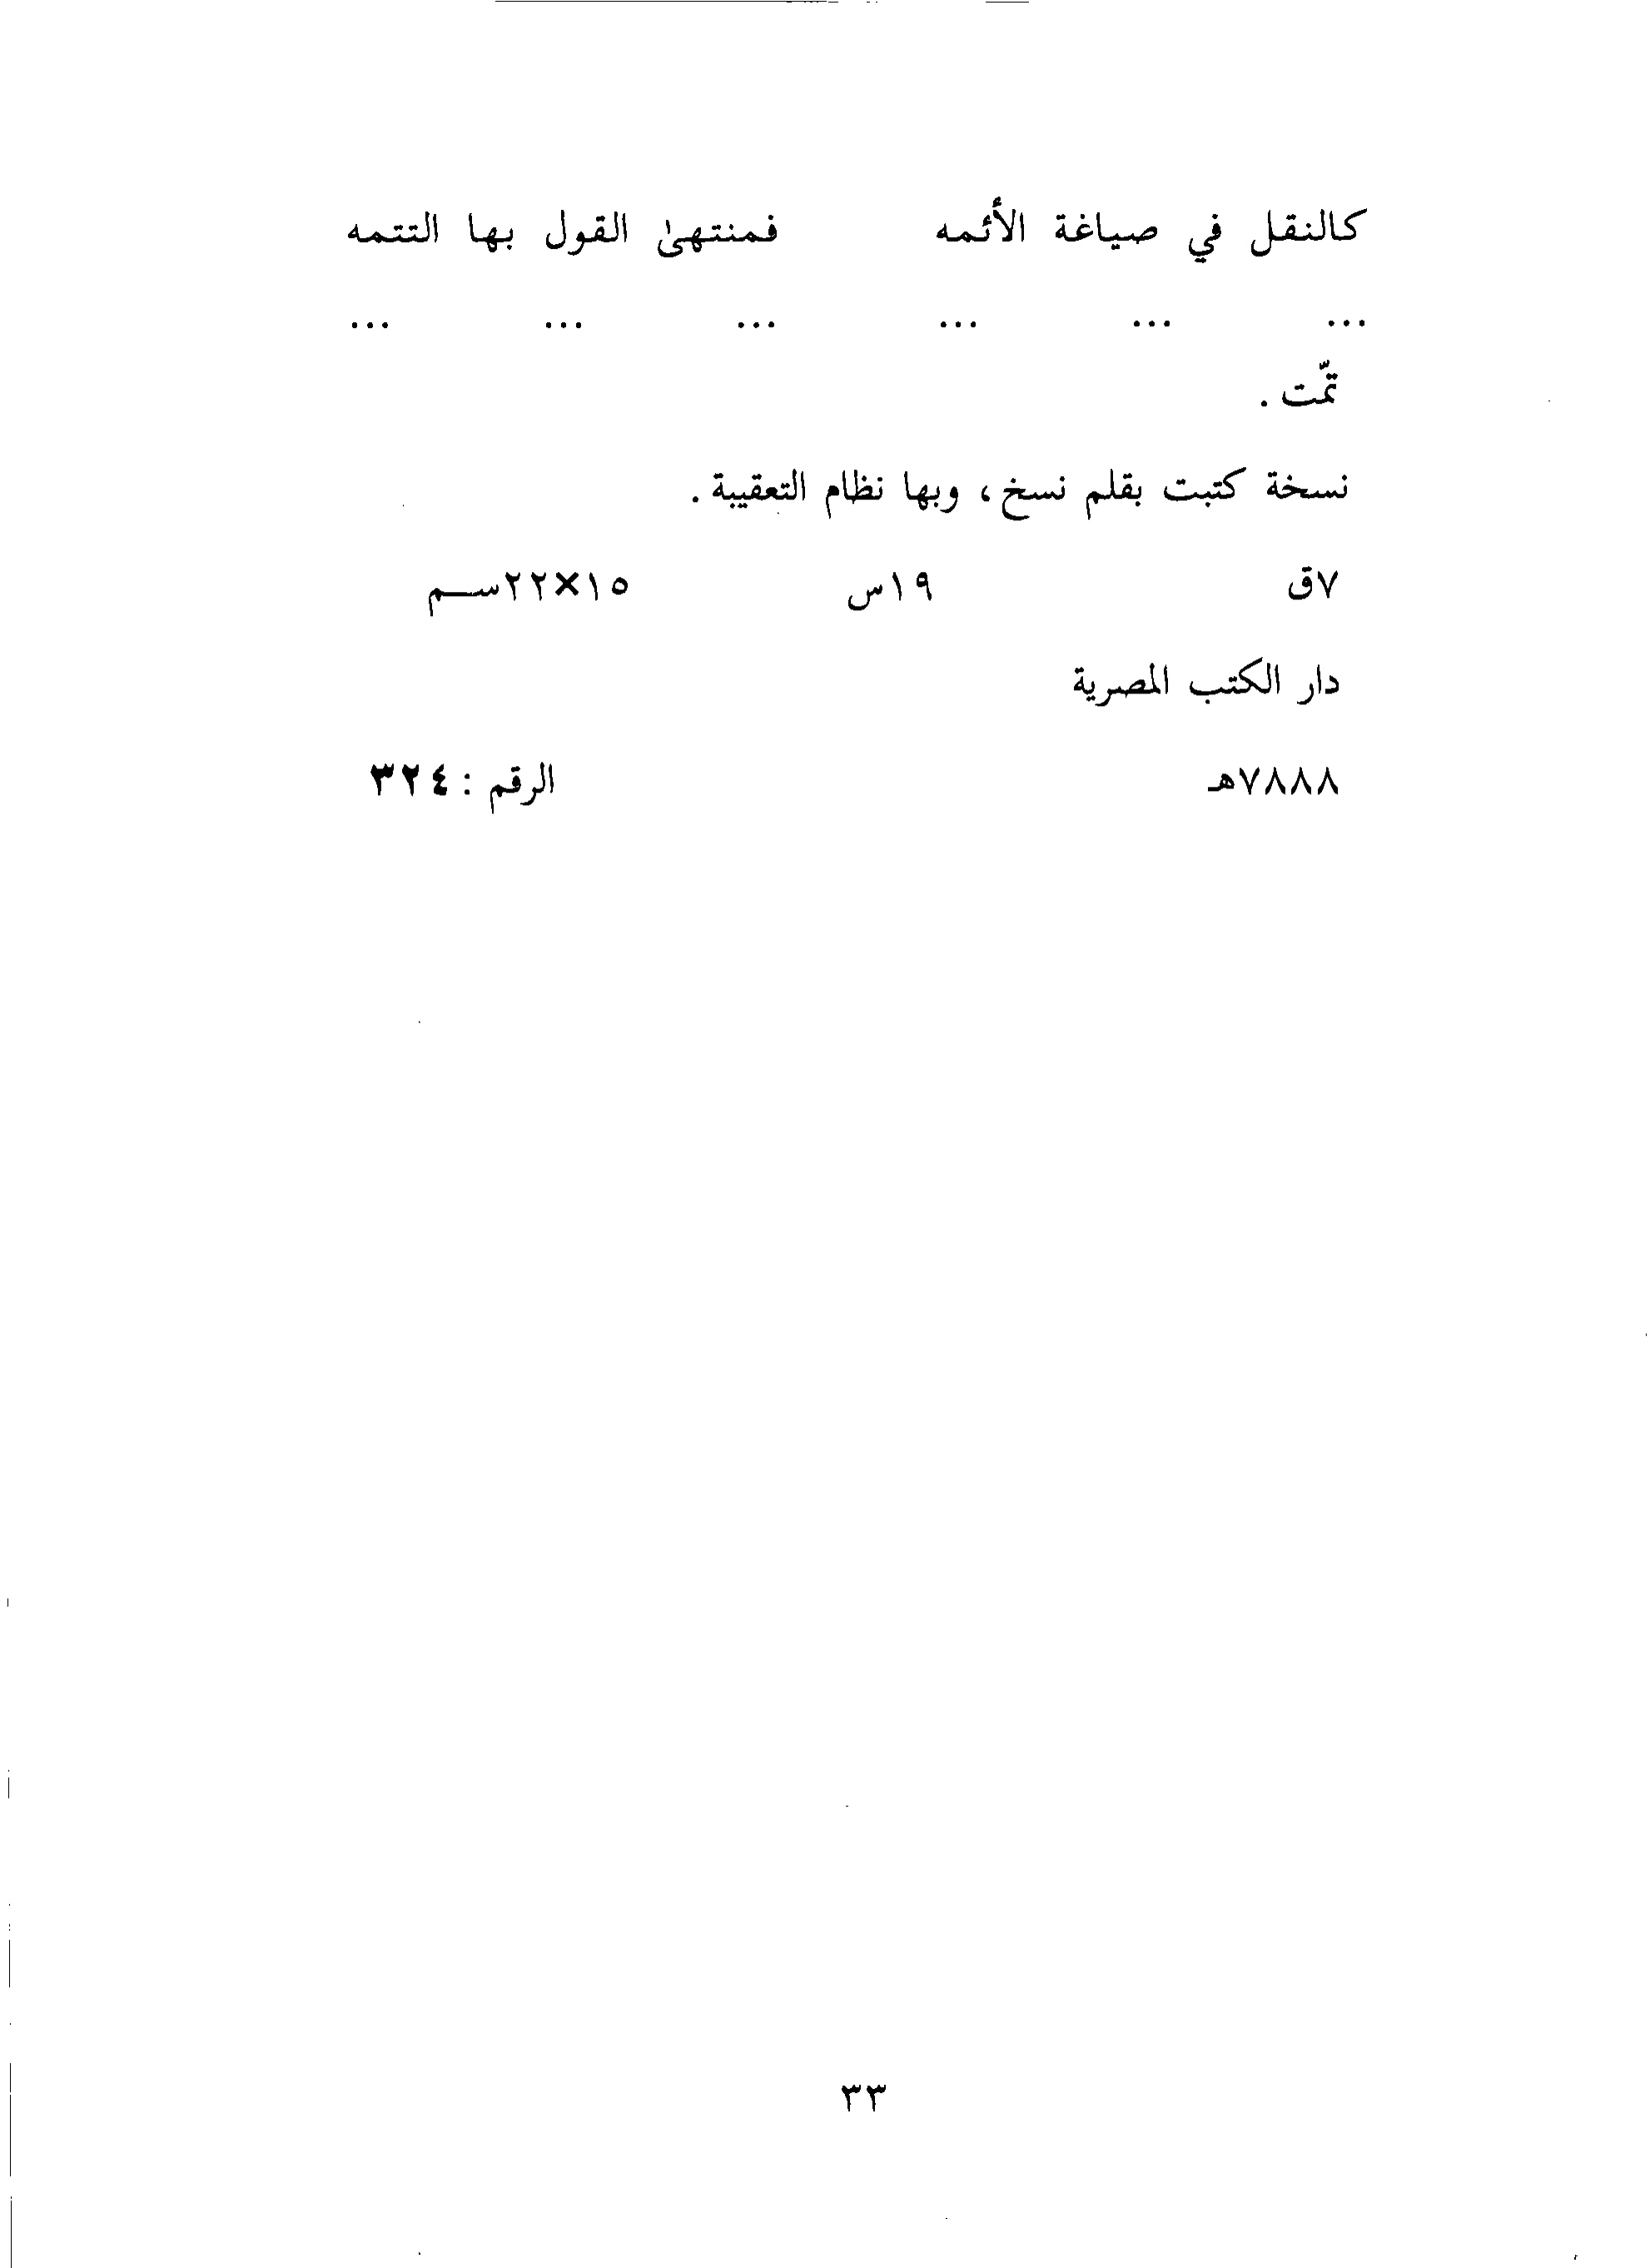 كالنقل في صياغة الأئمه فمنتهىٰ القول بها التتمه
... ... ... ... ... ...
تمّت .
نسخة كتبت بقلم نسخ ، وبها نظام التعقيبة .
٧ق ١٩س ١٥×٢٢ســم
دار الكتب المصرية
٧٨٨٨هـ الرقم : ٣٢٤
٣٣